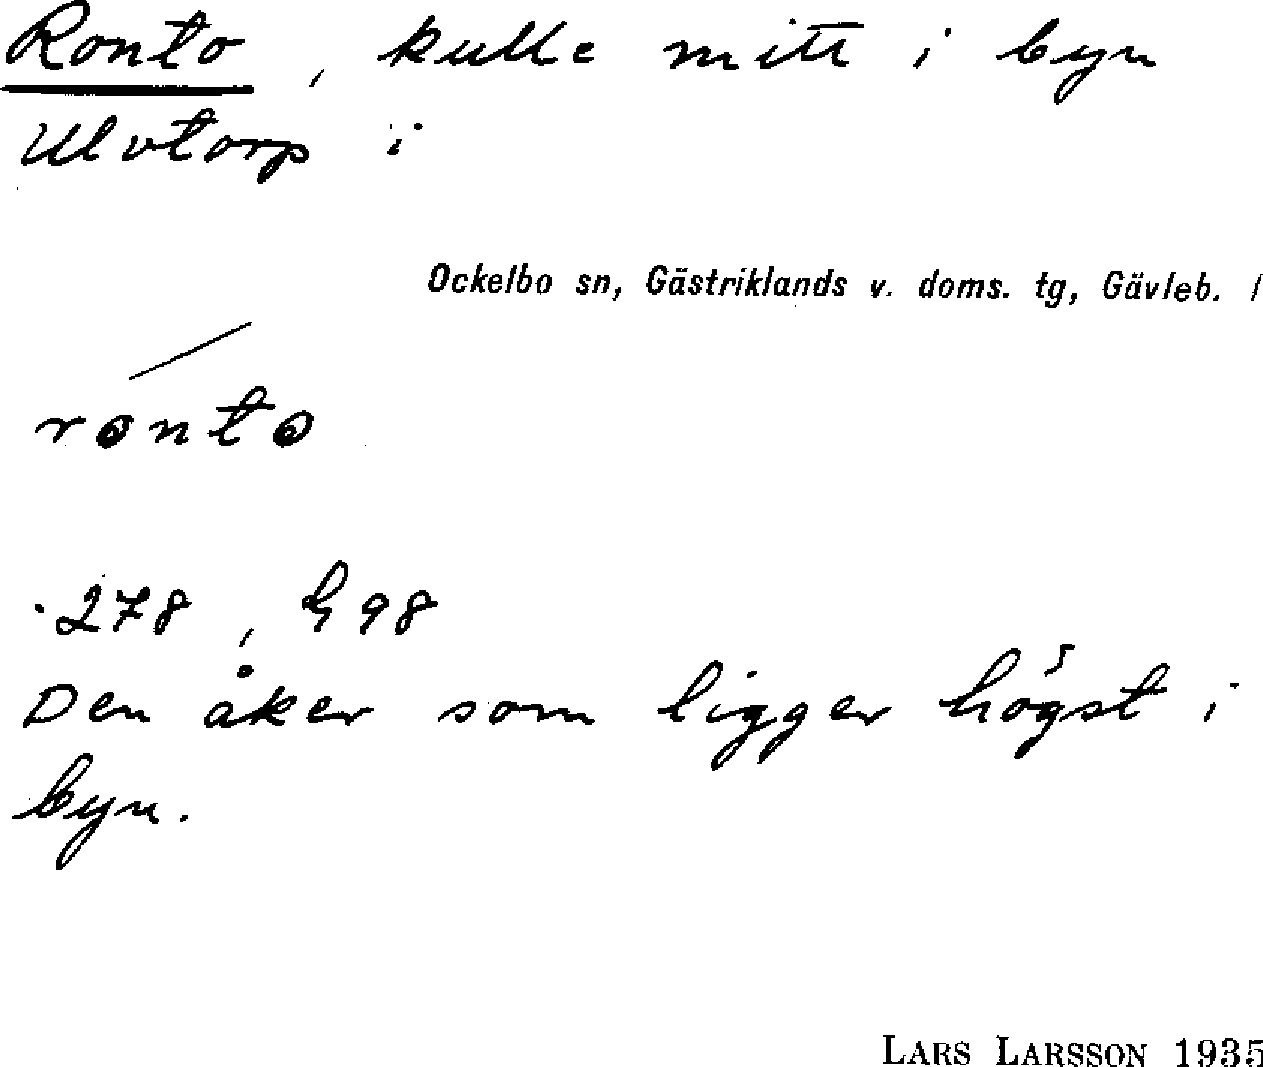 Ronto, kulle mitt i byn
Ulvtorp i
Ockelbo sn, Gästriklands v. doms. tg, Gävleb. l
ronto
278, h 98
Den åker som ligger högst i
byn.
LARS LARSSON 1935